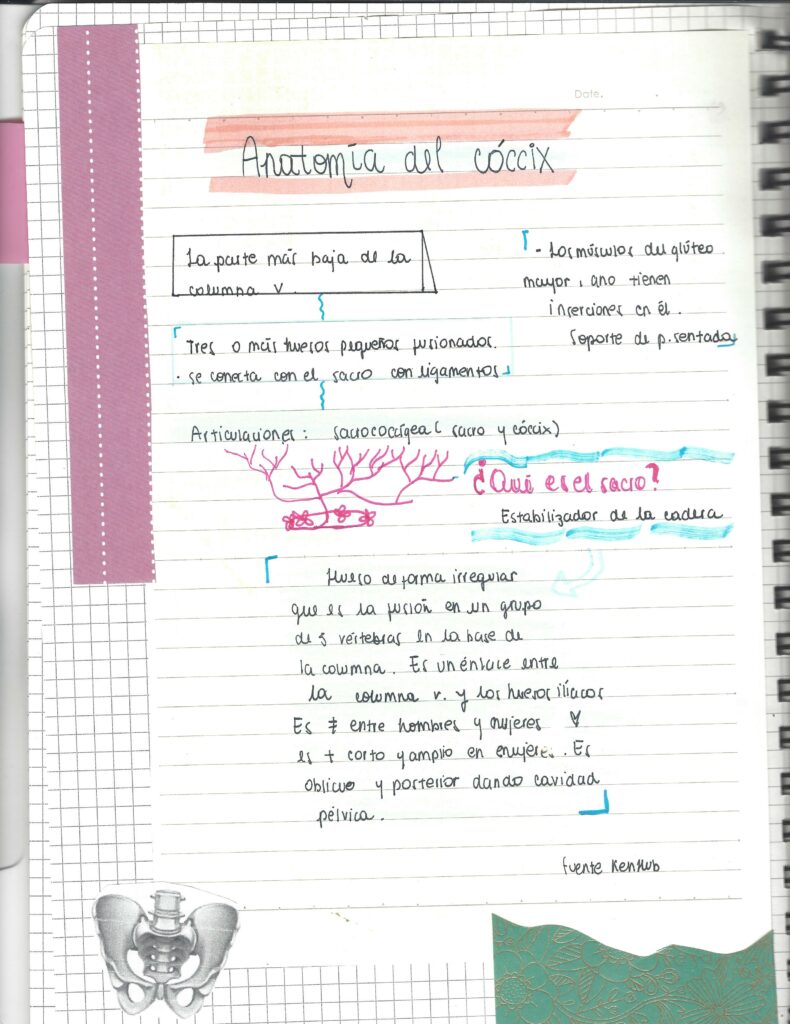 Date.
Anatomía del cóccix
La parte más baja de la
columna v.
Tres o más huesos pequeños fusionados.
· se conecta con el sacro con ligamentos
- Los músculos del glúteo
mayor, ano tienen
inserciones en él.
Soporte de p. sentada
Articulaciones: sacrococcígea ( sacro y cóccix)
¿Qué es el sacro?
Estabilizador de la cadera
Hueso de forma irregular
que es la fusión en un grupo
de 5 vertebras en la base de
la columna. Es un énlace entre
la columna v. y los huesos ilíacos
Es ≠ entre hombres y mujeres
es + corto y amplio en mujeres. Es
oblicuo y posterior dando cavidad
pélvica.
Fuente KenHub